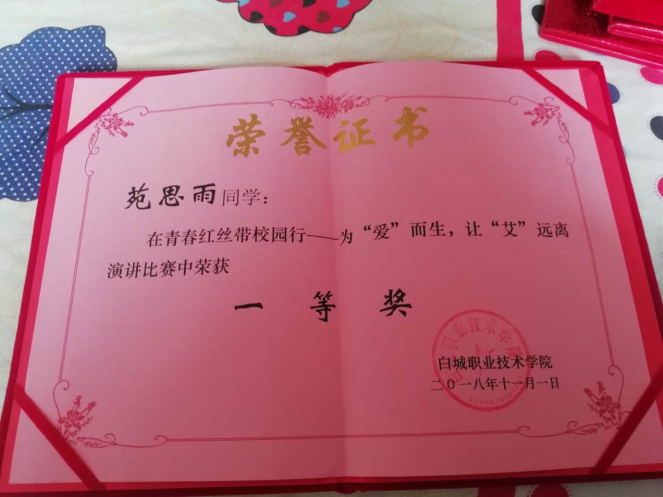 荣誉证书
苑思雨同学：
在青春红丝带校园行——为“爱”而生，让“艾”远离
演讲比赛中荣获
一等奖
白城职业技术学院
二〇一八年十一月一日